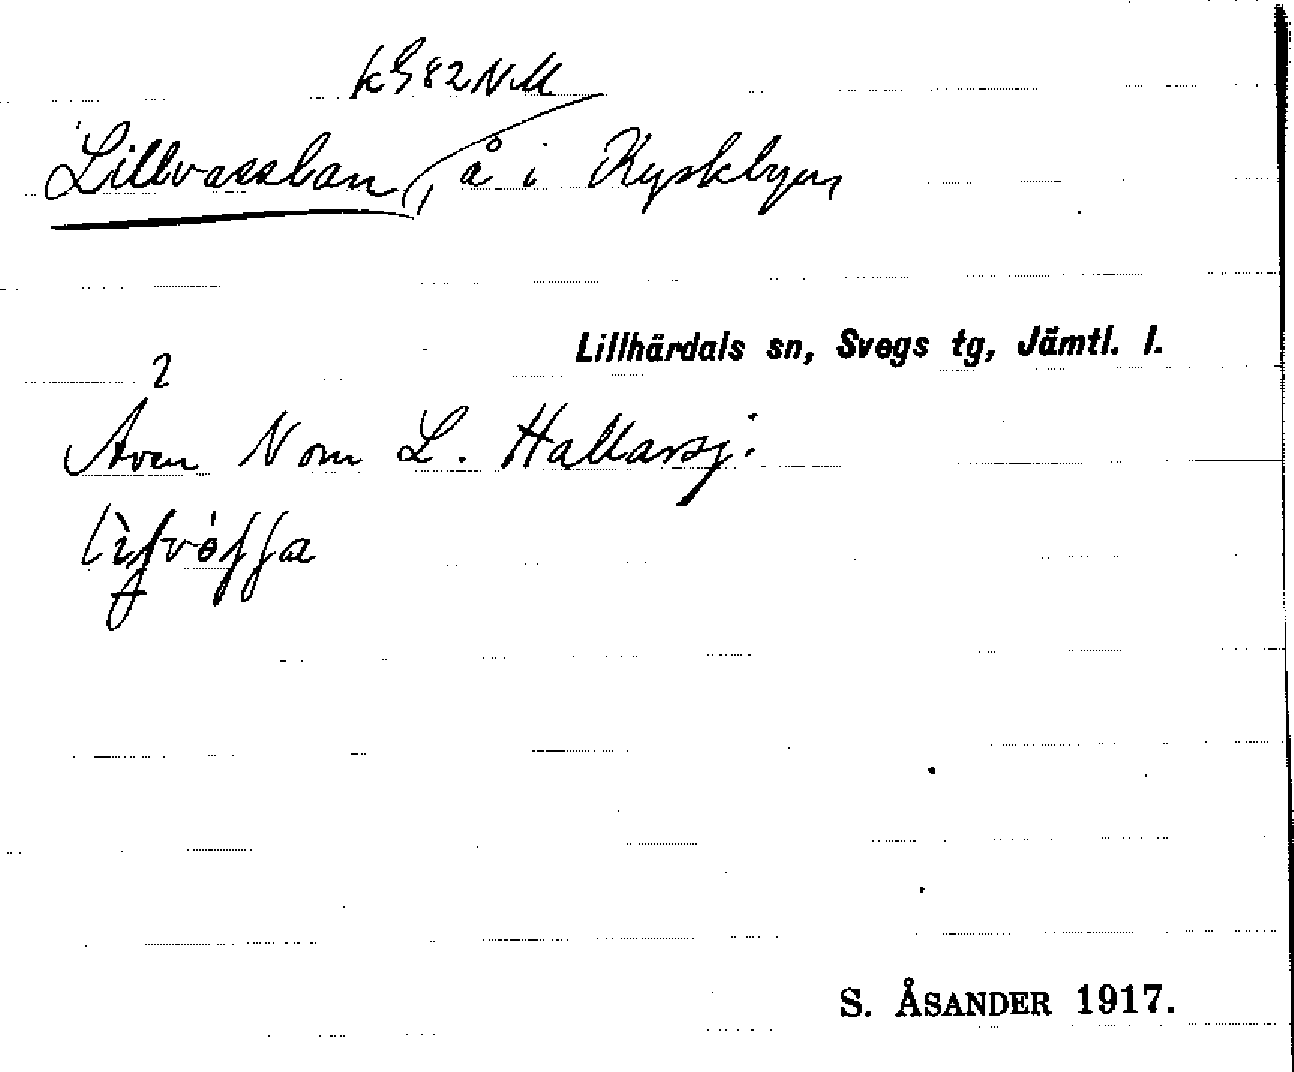 k 982 NM
Lillvasslan, å i Kyskbyen
Lillhärdals sn, Svegs tg, Jämtl. l.
2
Även N om L. Hallarsj.
S. ÅSANDER 1917.